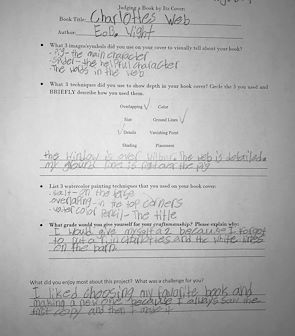 Judging a Book by Its Cover:
Book Title: Charlottes Web
Author: E.B. Wight
• What 3 images/symbols did you use on your cover to visually tell about your book?
-Pig- the main character
-Spider- the helpful character
-The words in the web
• What 3 techniques did you use to show depth in your book cover? Circle the 3 used and
BRIEFLY describe how you used them.
Overlapping Color
Size Ground Lines
Details Vanishing Point
Shading Placement
the window is over Wilbur. The web is detailed.
my ground line is not over the pig
• List 3 watercolor painting techniques that you used on your book cover:
-salt- on the
overlaping- in the top corners
-water color pencil- The title
• What grade would you give yourself for your craftsmanship? Please explain why:
I would give myself a because I forgot
to put a in Charlottes and the white lines
on the barn.
What did you enjoy most about this project? What was a challenge for you?
I liked choosing my favorite book and
making a new one because I always saw the
first copy and then I made it